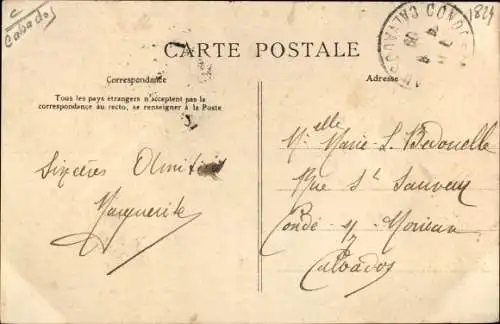 C
Calvados
1824
CARTE POSTALE
Correspondance
Adresse
Tous les pays étrangers n'acceptent pas la
correspondance au recto, se renseigner à la Poste
Sincères Amitiés
Marguerite
Melle Marie-L. Bedouelle
Rue St Sauveur
Condé s/ Noireau
Calvados